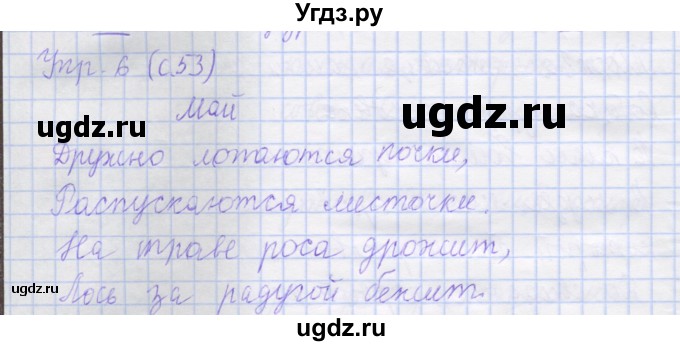 Угдз.ру
Упр. 6 (с.53)
Май
ugdz.ru
ugdz.ru
Дружно лопаются почки,
Распускаются листочки.
На траве роса дрожит,
ugdz.ru
ugdz.ru
Лось за радугой бежит.
ugdz.ru